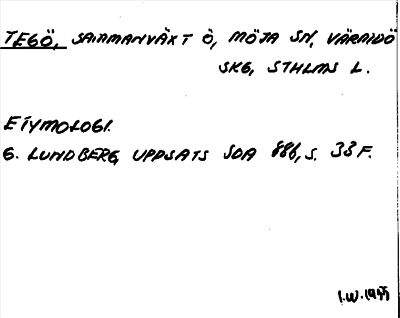 TEGÖ, SAMMANVÄXT Ö, MÖJA SN, VÄRMDÖ
SKG, STHLMS L.
ETYMOLOGI.
G. LUNDBERG, UPPSATS SOA 886, S. 33 F.
I.W. 1955